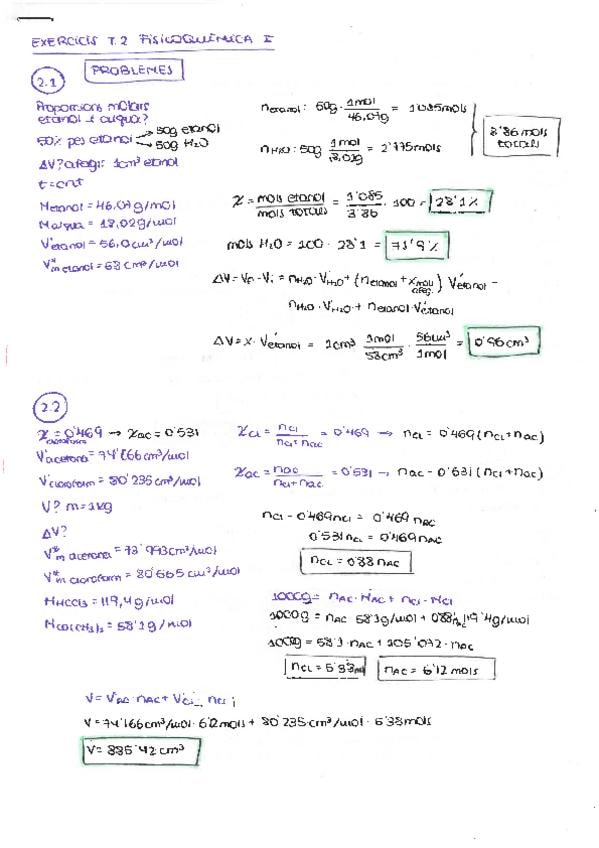 EXERCICIS T.2 FISICOQUÍMICA I
2.1 PROBLEMES
Proporcions molars
etanol i aigua?
50% pes etanol → 50g etanol
→ 50g H2O
ΔV? afegir 1cm³ etanol
t=cnt
Metanol = 46,07g/mol
Maigua = 18,02g/mol
V etanol = 56,0cm³/mol
V*m etanol = 58 cm³/mol
netanol: 50g · 1mol / 46,07g = 1'085mols
nH2O: 50g 1mol / 18,02g = 2'775mols
3'86 mols
totals
χ = mols etanol / mols totals = 1'085 / 3'86 · 100 = 28'1%
mols H2O = 100 - 28'1 = 71'9%
ΔV = VF - Vi = nH2O · VH2O + (netanol + x mols afeg.) Vetanol -
nH2O · VH2O + netanol · Vetanol
ΔV = x · Vetanol = 1cm³ 1mol / 58cm³ · 56cm³ / 1mol = 0'96cm³
2.2
χcloroform = 0'469 → χAC = 0'531
Vacetona = 74'166cm³/mol
Vcloroform = 80'235cm³/mol
V? m=1kg
ΔV?
V*m acetona = 73'993cm³/mol
V*m cloroform = 80'665cm³/mol
MHCCl3 = 119,4g/mol
MCO(CH3)2 = 58'1g/mol
χCl = nCl / nCl+nAC = 0'469 → nCl = 0'469 (nCl+nAC)
χAC = nAC / nCl+nAC = 0'531 → nAC = 0'531 (nCl+nAC)
nCl - 0'469nCl = 0'469nAC
0'531nCl = 0'469nAC
nCl = 0'88nAC
1000g = nAC · MAC + nCl · MCl
1000g = nAC 58'1g/mol + 0'88nAC 119'4g/mol
1000g = 58'1 · nAC + 105'072 · nAC
nCl = 5'39m nAC = 6'12mols
V = VAC · nAC + VCl · nCl ;
V = 74'166cm³/mol · 6'12mols + 80'235cm³/mol · 5'38mols
V = 885'42cm³